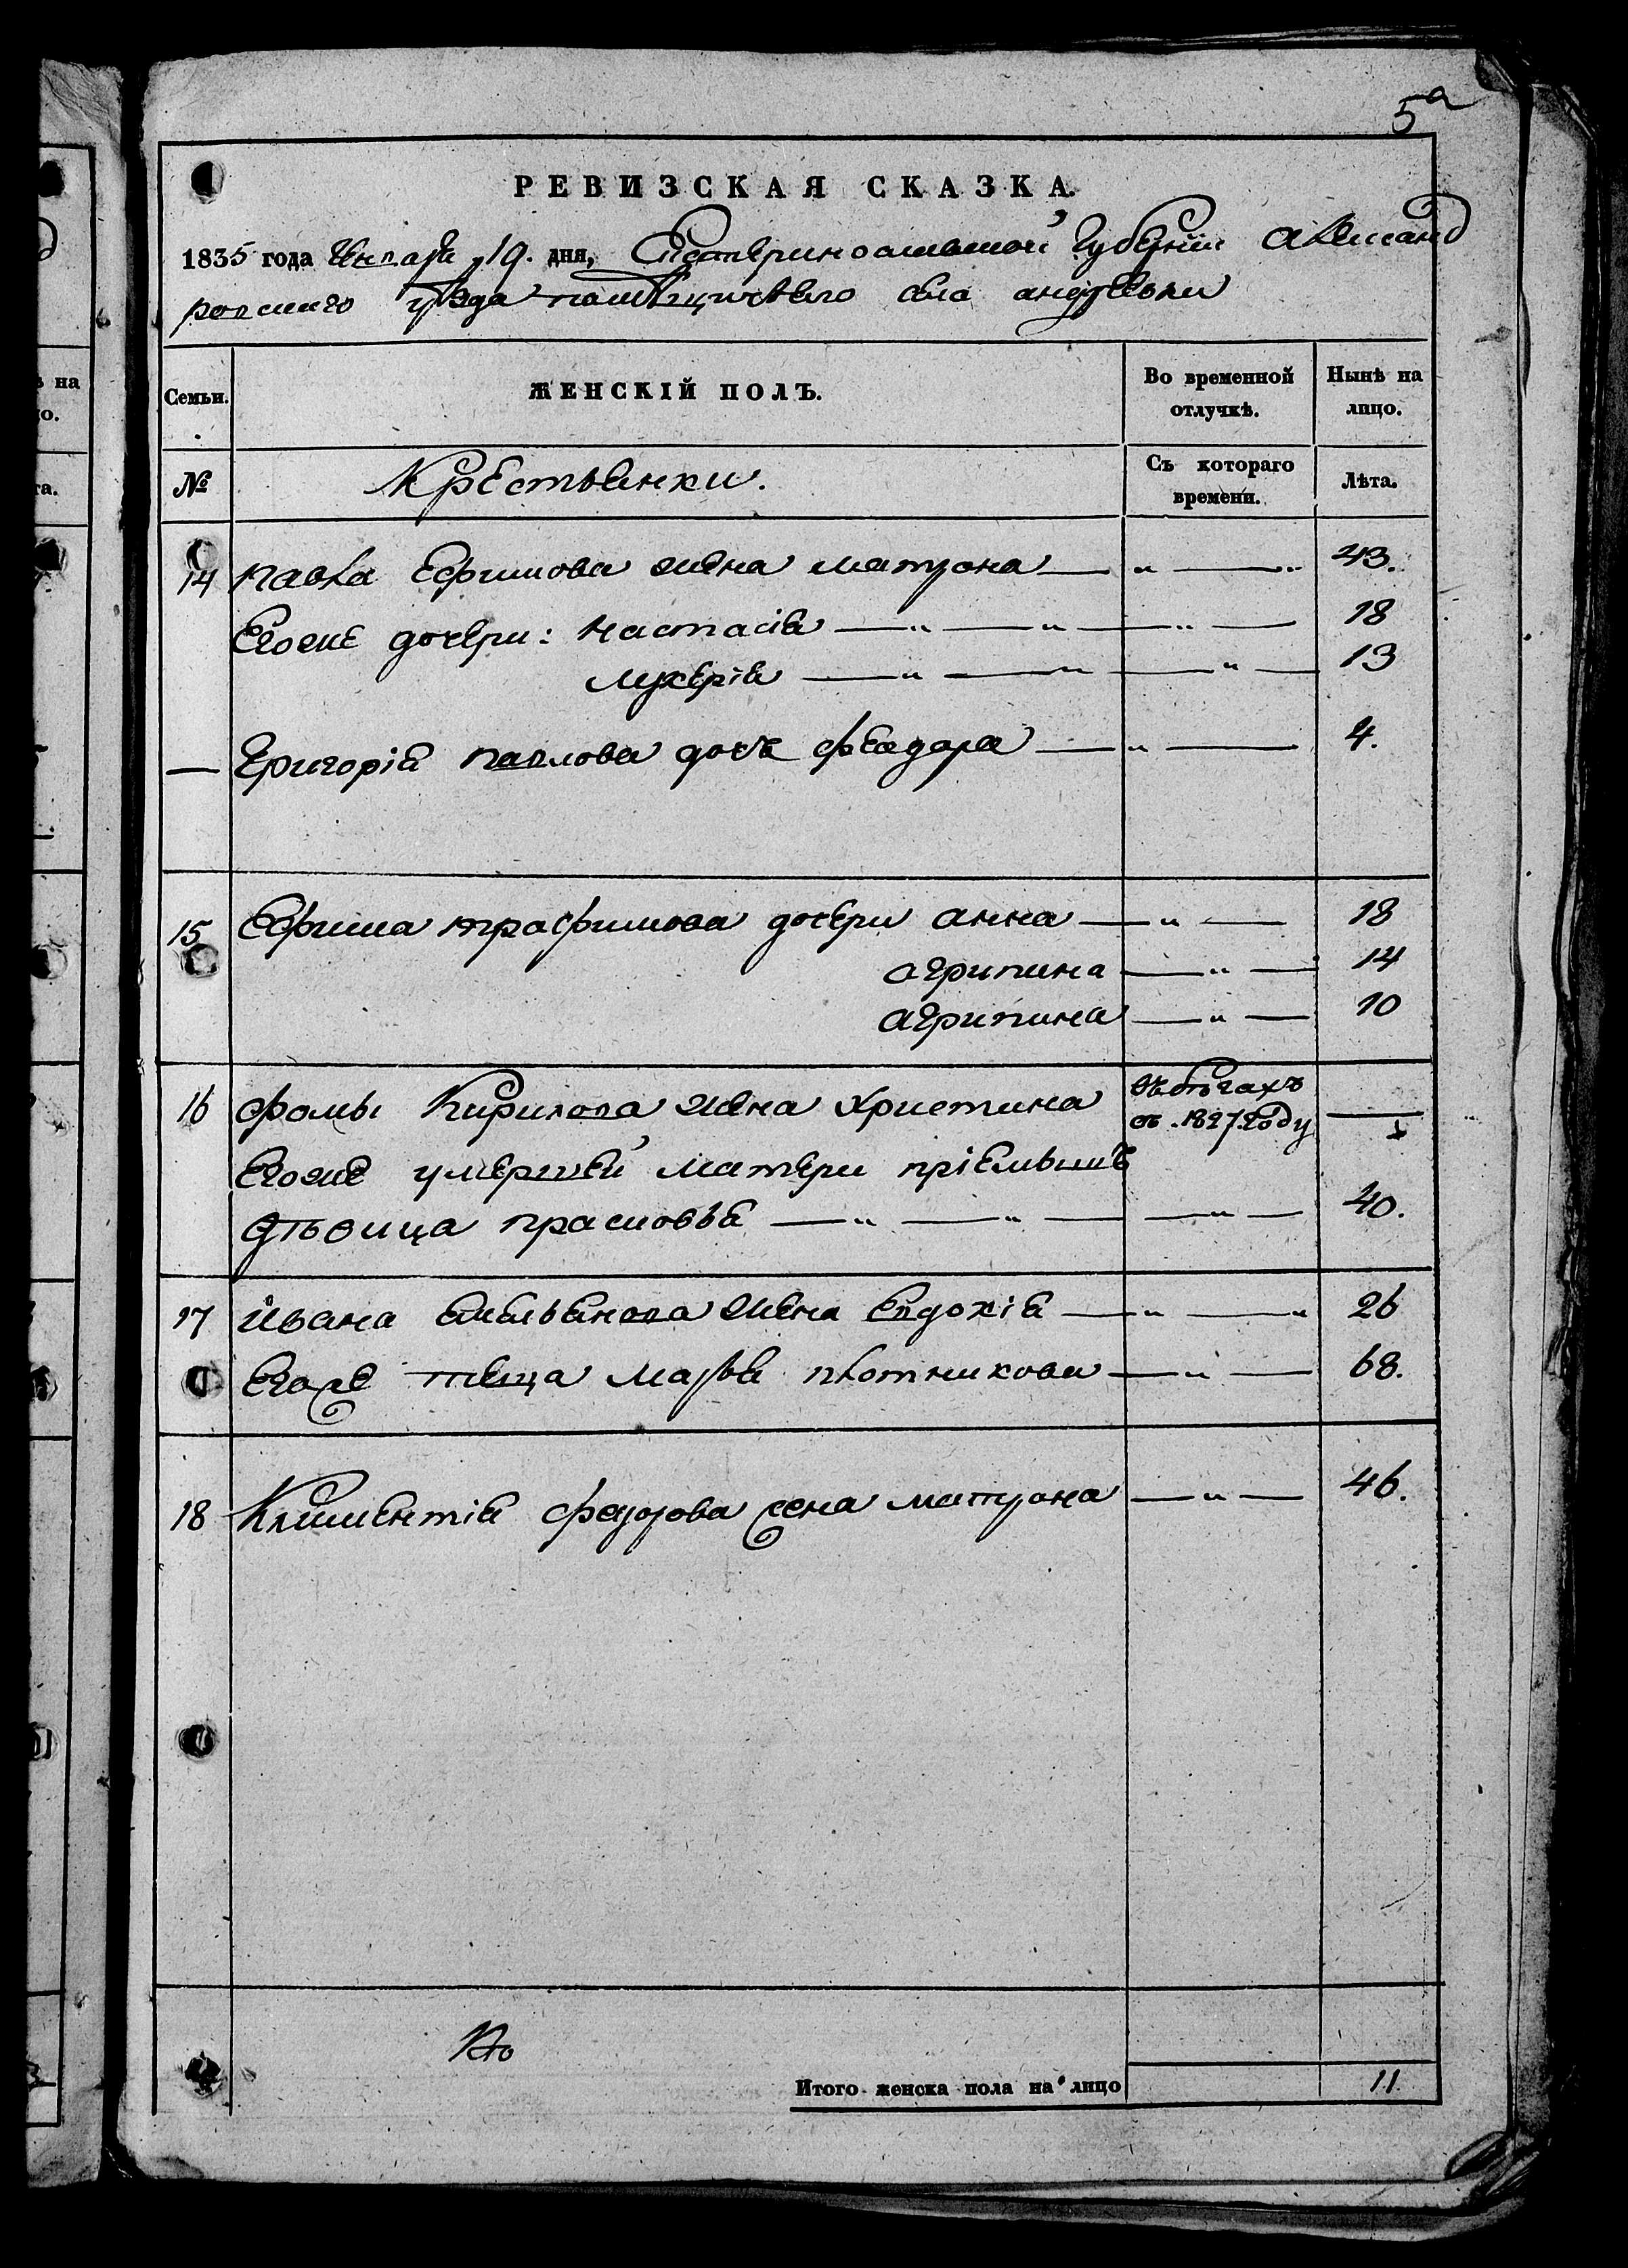 5а
РЕВИЗСКАЯ СКАЗКА.
1835 года Генваря 19. дня, Екатеринославской Губерніи Александ
ровскаго уезда помѣщичьяго села андреевки
Семьи.
ЖЕНСКІЙ ПОЛЪ.
Во временной отлучкѣ.
Нынѣ на лицо.
№
Крестьянки.
Съ котораго времени.
Лѣта.
14 Павла Ефимова жена матрона — „ — „ 43.
Егоже дочери: настасія — „ — „ — „ — 18
лукерія — „ — „ — „ — 13
— Григорія павлова дочь феадора — „ — 4.
15 Ефима трафимова дочери анна — „ — 18
агрипина — „ — 14
агрипина — „ — 10
16 фомы Кирилова жена христина въ бѣгахъ
съ .1827. году —
Егоже умершей матери пріемышъ
дѣвица прасковья — „ — „ — „ — 40.
17 Ивана емельянова жена евдокія — „ — „ 26
Егоже теща марья плотникова — „ — 68.
18 Климентія федорова жена матрона — „ — 46.
Итого женска пола на лицо 11.
на
ло.
та.